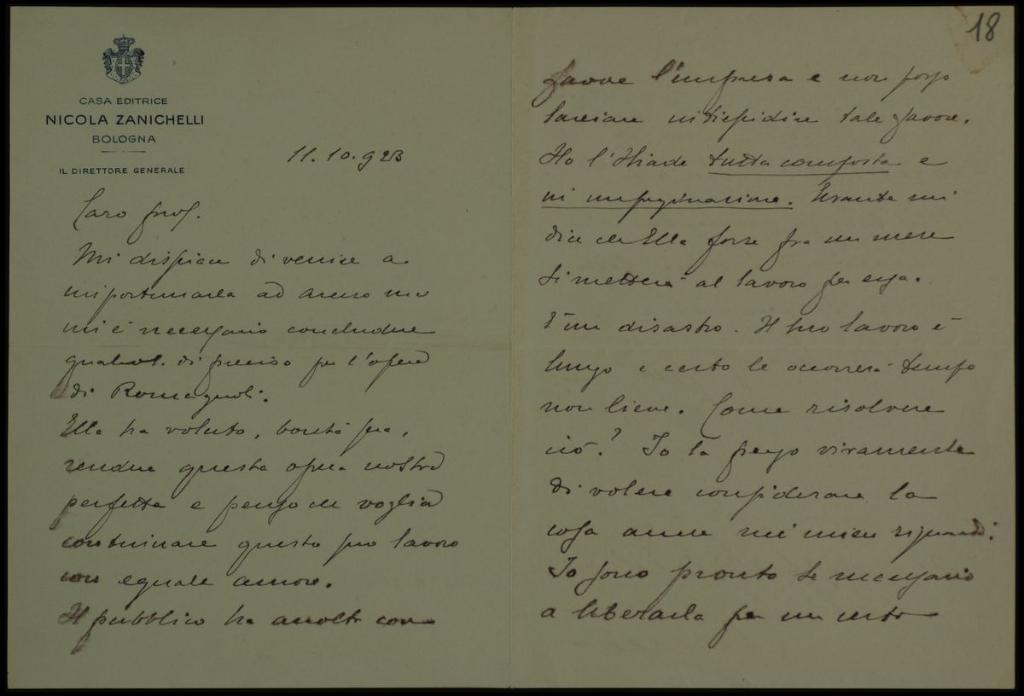 CASA EDITRICE
NICOLA ZANICHELLI
BOLOGNA
IL DIRETTORE GENERALE
11.10.923
Caro prof.
Mi dispiace di venire a
importunarla ad Arezzo ma
mi è necessario concludere
qualcosa di preciso per l'opera
di Romagnoli.
Ella ha voluto, bontà sua,
rendere questa opera nostra
perfetta e penso che voglia
continuare questo suo lavoro
con eguale amore.
Il pubblico ha accolto con
18
favore l'impresa e non posso
lasciare intiepidire tale favore.
Ho l'Iliade tutta composta e
in impaginazione. mi
dice che Ella forse fra un mese
si metterà al lavoro per essa.
È un disastro. Il suo lavoro è
lungo e certo le occorrerà tempo
non lieve. Come risolvere
ciò? Io la prego vivamente
di volere considerare la
cosa anche nei miei riguardi.
Io sono pronto se necessario
a liberarla per un certo